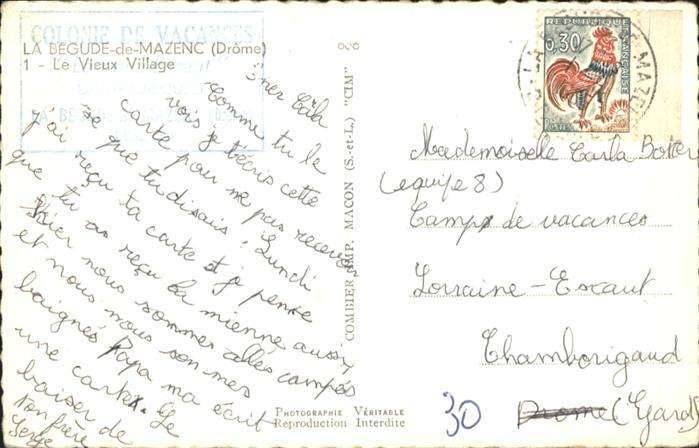 COLONIE DE VACANCES
LA BEGUDE-de-MAZENC (Drôme)
1 - Le Vieux Village
Comme tu le
vois je t'écris cette
carte pour ne pas recevoir
ce que tu disais. Lundi
j'ai reçu ta carte et je pense
que tu as reçu la mienne aussi,
Hier nous sommes allés campés
et nous nous sommes
baignés Papa ma écrit
une carte. Je
baiser de
ton frère
Serge
COMBIER IMP. MACON (S.-et-L.) "CIM"
PHOTOGRAPHIE VÉRITABLE
Reproduction Interdite
REPUBLIQUE
FRANÇAISE
0,30
POSTES
Mademoiselle Carla
(equipe 8)
Camps de vacances
Lorraine-Escaut
Chamborigaud
30
Drome (Gard)